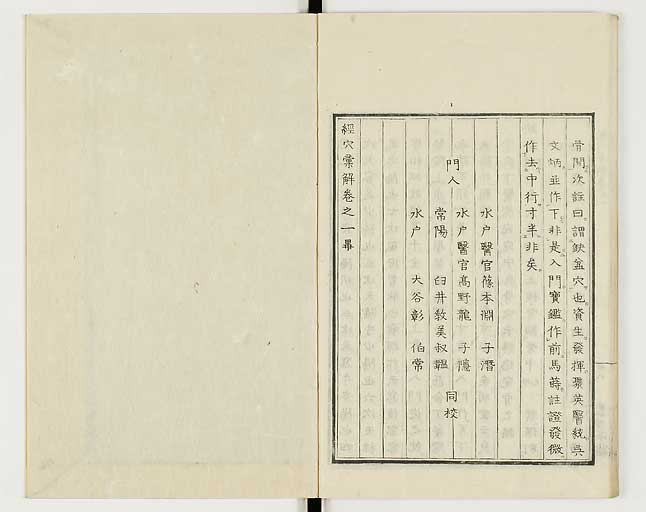 骨間次註曰謂缺盆穴也資生發揮聚英醫統吳
文炳並作下非是入門寶鑑作前馬蒔註證發微
作去中行寸半非矣
門人
水戸醫官篠本淵 子潛
水戸醫官高野龍 子隱
常陽 臼井教美叔韞
水戸 大谷彰 伯常
同校
經穴彙解卷之一畢